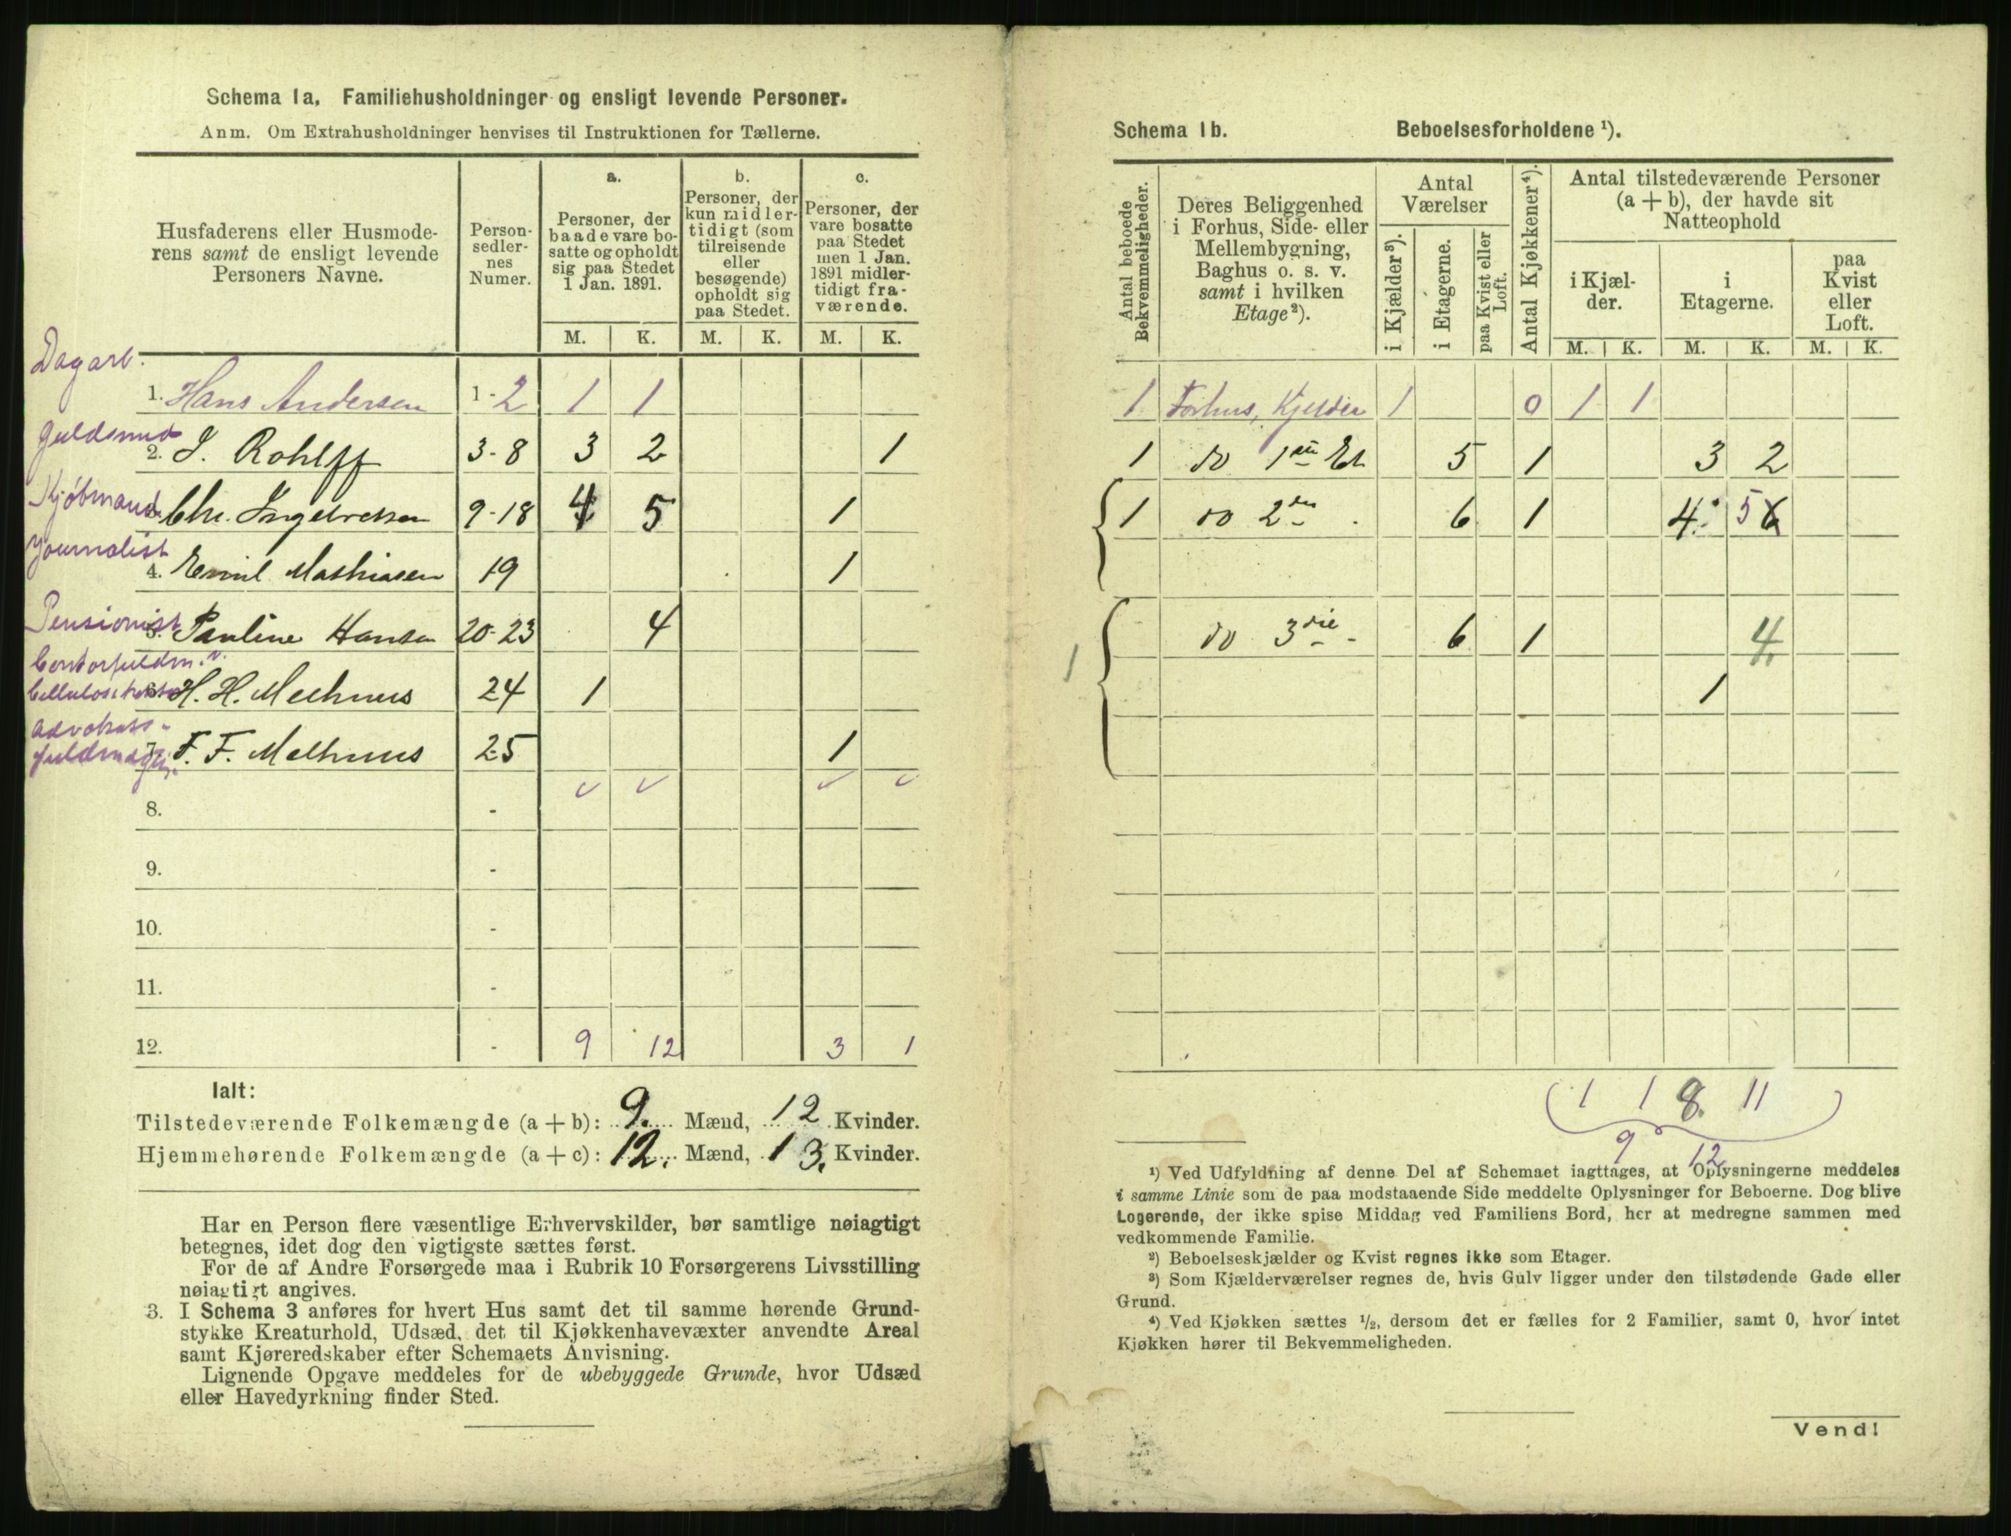 Schema 1a. Familiehusholdninger og ensligt levende Personer.
Anm. Om Extrahusholdninger henvises til Instruktionen for Tællerne.
Husfaderens eller Husmode-
rens samt de ensligt levende
Personers Navne.
Person-
sedler-
nes
Numer.
a.
Personer, der
baade vare bo-
satte og opholdt
sig paa Stedet
1 Jan. 1891.
b.
Personer, der
kun midler-
tidigt (som
tilreisende
eller
besøgende)
opholdt sig
paa Stedet.
c.
Personer, der
vare bosatte
paa Stedet
men 1 Jan.
1891 midler-
tidigt fra-
værende.
M. K. M. K. M. K.
Dagarb.
1. Hans Andersen 1-2 1 1
Guldsmed
2. J. Rohlff 3-8 3 2 1
Kjøbmand
Chr. Ingebretsen 9-18 4 5 1
Journalist
4. Emil Mathiasen 19 1
Pensionist
5. Pauline Hansen 20-23 4
Contorfuldm. v.
6. H. H. Melhuus 24 1
Advokat-
fuldmægtig
7. F. F. Melhuus 25 1
8. -
9. -
10. -
11. -
12. - 9 12 3 1
Ialt:
Tilstedeværende Folkemængde (a + b): 9. Mænd, 12 Kvinder.
Hjemmehørende Folkemængde (a + c): 12. Mænd, 13. Kvinder.
Har en Person flere væsentlige Erhvervskilder, bør samtlige nøiagtigt
betegnes, idet dog den vigtigste sættes først.
For de af Andre Forsørgede maa i Rubrik 10 Forsørgerens Livsstilling
nøiagtigt angives.
3. I Schema 3 anføres for hvert Hus samt det til samme hørende Grund-
stykke Kreaturhold, Udsæd, det til Kjøkkenhavevæxter anvendte Areal
samt Kjøreredskaber efter Schemaets Anvisning.
Lignende Opgave meddeles for de ubebyggede Grunde, hvor Udsæd
eller Havedyrkning finder Sted.
Schema 1b. Beboelsesforholdene ¹).
Antal beboede
Bekvemmeligheder.
Deres Beliggenhed
i Forhus, Side- eller
Mellembygning,
Baghus o. s. v.
samt i hvilken
Etage²).
Antal
Værelser
i Kjælder³).
i Etagerne.
paa Kvist eller
Loft.
Antal Kjøkkener⁴).
Antal tilstedeværende Personer
(a + b), der havde sit
Natteophold
i Kjæl-
der.
i
Etagerne.
paa
Kvist
eller
Loft.
M. K. M. K. M. K.
1 Forhus, Kjelder 1 0 1 1
1 do 1ste Et 5 1 3 2
1 do 2den 6 1 4 5 6
1 do 3die 6 1 4
1
1 1 8. 11
9 12
¹) Ved Udfyldning af denne Del af Schemaet iagttages, at Oplysningerne meddeles
i samme Linie som de paa modstaaende Side meddelte Oplysninger for Beboerne. Dog blive
Logerende, der ikke spise Middag ved Familiens Bord, her at medregne sammen med
vedkommende Familie.
²) Beboelseskjælder og Kvist regnes ikke som Etager.
³) Som Kjælderværelser regnes de, hvis Gulv ligger under den tilstødende Gade eller
Grund.
⁴) Ved Kjøkken sættes ½, dersom det er fælles for 2 Familier, samt 0, hvor intet
Kjøkken hører til Bekvemmeligheden.
Vend!